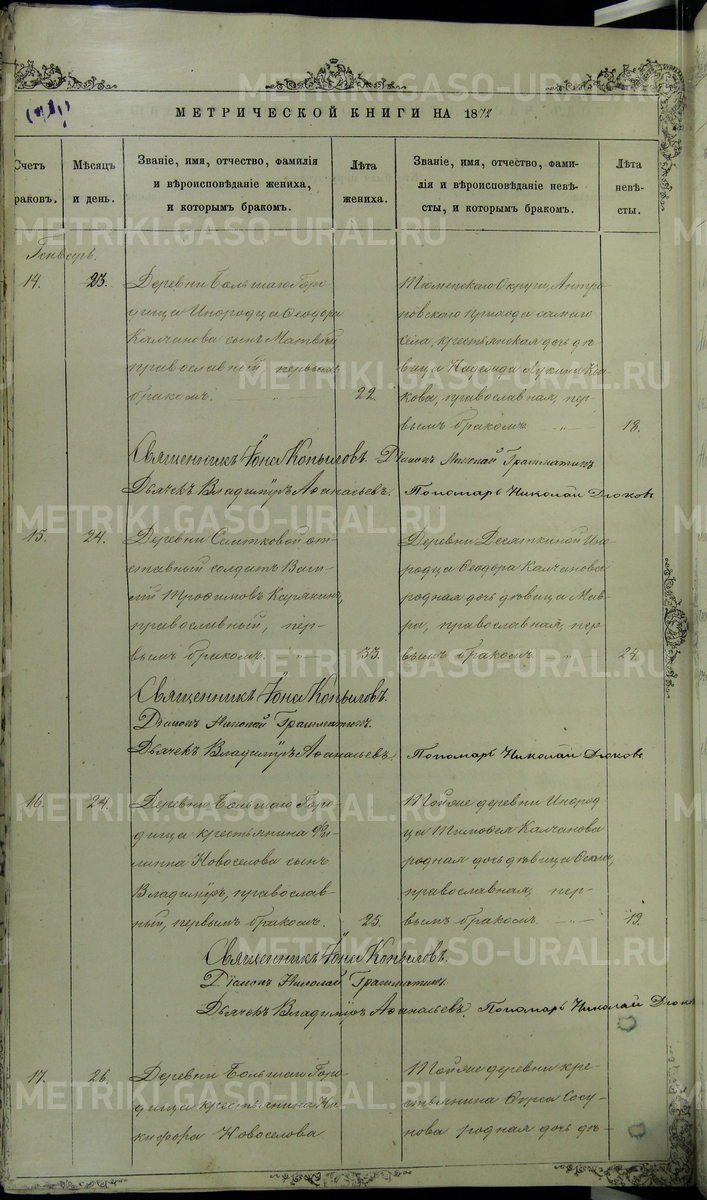 МЕТРИЧЕСКОЙ КНИГИ НА 1872
Счетъ браковъ.
Мѣсяцъ и день.
Званіе, имя, отчество, фамилія
и вѣроисповѣданіе жениха,
и которымъ бракомъ.
Лѣта
жениха.
Званіе, имя, отчество, фами-
лія и вѣроисповѣданіе невѣ-
сты, и которымъ бракомъ.
Лѣта
невѣ-
сты.
Генварь.
14.
23.
Деревни Большаго Горо-
дища Инородца Ѳеодора
Калчанова сынъ Матвѣй
православный, первымъ
бракомъ.
22.
Тюменскаго Округа, Антро-
повскаго прихода самаго
села, крестьянская дочь дѣ-
вица Надежда Лукина
кова, православная, пер-
вымъ бракомъ
18.
Священникъ Іона Копыловъ. Діаконъ Николай Грамматикъ
Дьячекъ Владиміръ Аѳанасьевъ. Пономарь Николай Дюковъ
15.
24.
Деревни Салтковой от-
ставный солдатъ Васи-
лій Трофимовъ Карякинъ,
православный, пер-
вымъ бракомъ.
33.
Деревни Десяткиной Ино-
родца Ѳеодора Калчанова
родная дочь дѣвица Мав-
ра, православная, пер-
вымъ бракомъ
24.
Священникъ Іона Копыловъ.
Діаконъ Николай Грамматикъ.
Дьячекъ Владиміръ Аѳанасьевъ. Пономарь Николай Дюковъ
16.
24.
Деревни Большаго Горо-
дища крестьянина Фи-
липпа Новоселова сынъ
Владиміръ, православ-
ный, первымъ бракомъ.
25.
Той же деревни Инород-
ца Тимофея Калчанова
родная дочь дѣвица
православная, пер-
вымъ бракомъ
19.
Священникъ Іона Копыловъ.
Діаконъ Николай Грамматикъ.
Дьячекъ Владиміръ Аѳанасьевъ. Пономарь Николай Дюковъ
17.
26.
Деревни Большаго Горо-
дища крестьянина Ни-
кифора Новоселова
Той же деревни кре-
стьянина Сосу-
нова родная дочь дѣ-
METRIKI.GASO-URAL.RU